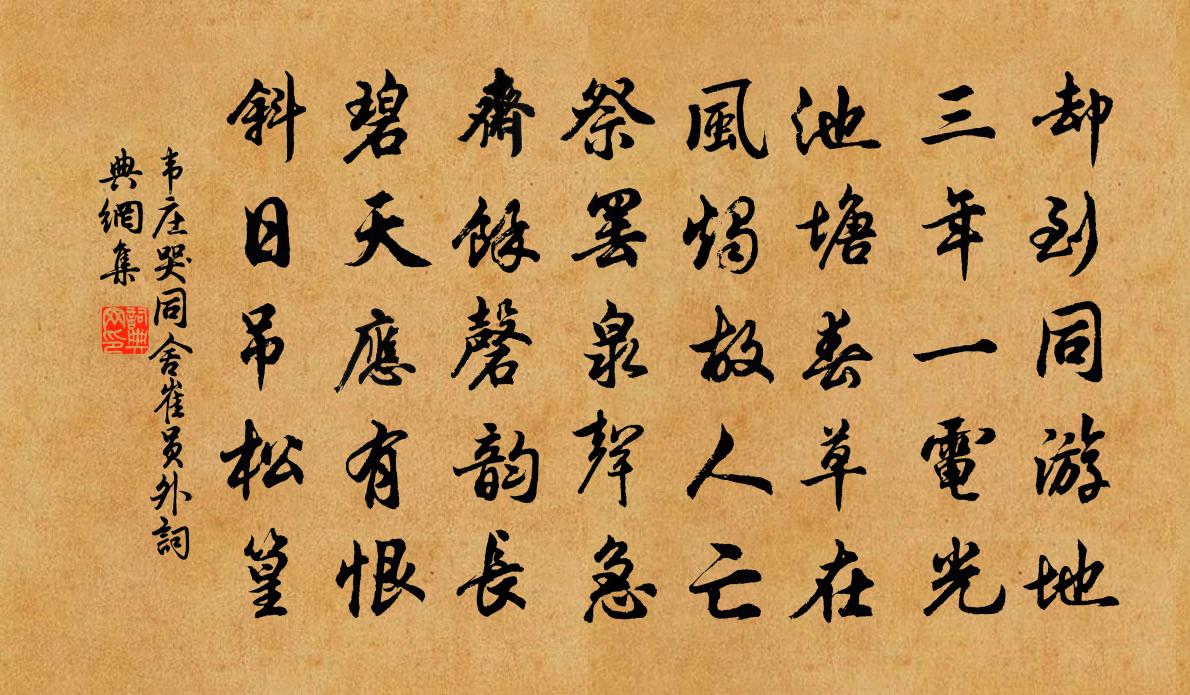 却到同游地
三年一電光
池塘春草在
風燭故人亡
祭罢泉聲急
齋餘磬韵長
碧天應有恨
斜日吊松篁
韦庄哭同舍崔员外詞
典網集
詞典
网印